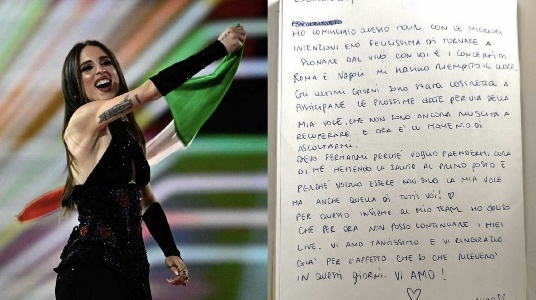 HO COMINCIATO QUESTO TOUR CON LE MIGLIORI
INTENZIONI ERO FELICISSIMA DI TORNARE A
SUONARE DAL VIVO CON VOI E I CONCERTI DI
ROMA E NAPOLI MI HANNO RIEMPITO IL CUORE.
GLI ULTIMI GIORNI SONO STATA COSTRETTA A
POSTICIPARE LE PROSSIME DATE PER VIA DELLA
MIA VOCE, CHE NON SONO ANCORA RIUSCITA A
RECUPERARE E ORA E' IL MOMENTO DI
ASCOLTARMI.
DEVO FERMARMI PERCHÉ VOGLIO PRENDERMI CURA
DI ME METTENDO LA SALUTE AL PRIMO POSTO E
PERCHÉ VOGLIO ESSERE NON SOLO LA MIA VOCE
MA ANCHE QUELLA DI TUTTI VOI! ♡
PER QUESTO INSIEME AL MIO TEAM HO DECISO
CHE PER ORA NON POSSO CONTINUARE I MIEI
LIVE. VI AMO TANTISSIMO E VI RINGRAZIO
GIA' PER L'AFFETTO CHE SO CHE RICEVERO'
IN QUESTI GIORNI. VI AMO!
♡